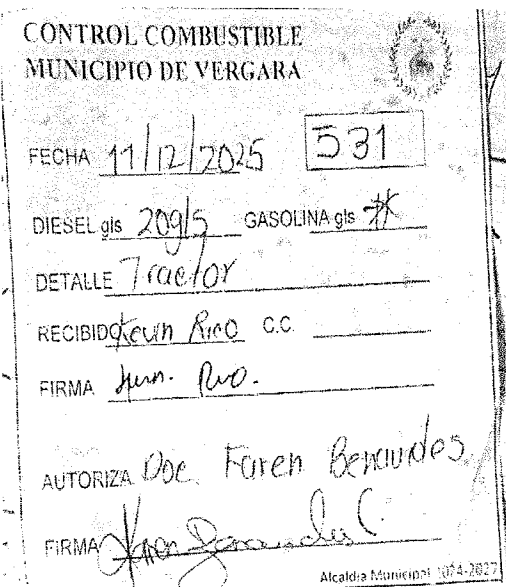 CONTROL COMBUSTIBLE
MUNICIPIO DE VERGARA
FECHA 11/12/2025 531
DIESEL gls 20gls GASOLINA gls
DETALLE Tractor
RECIBIDO Kevin Rico C.C.
FIRMA Rico.
AUTORIZA Doc. Faren Benavides
FIRMA
Alcaldía Municipal 2024-2027